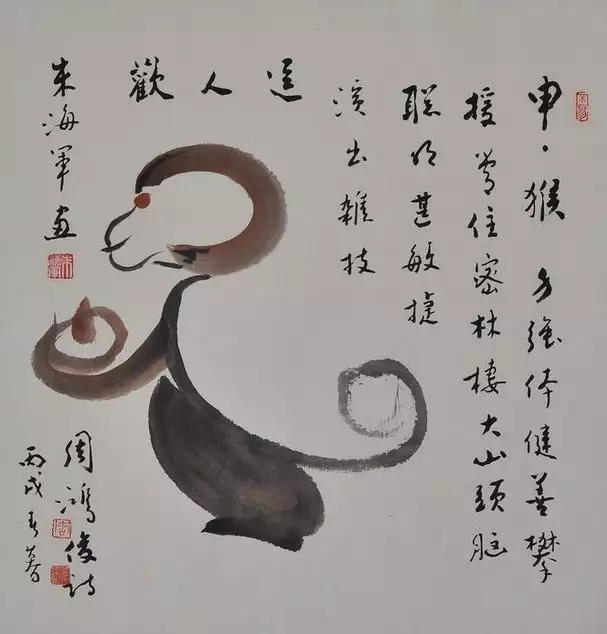 申·猴 力強体健善攀
援常住密林棲大山頭脑
聪明甚敏捷
演出雜技
逗人歡
朱海軍畫
周鴻俊詩
丙戌春暮